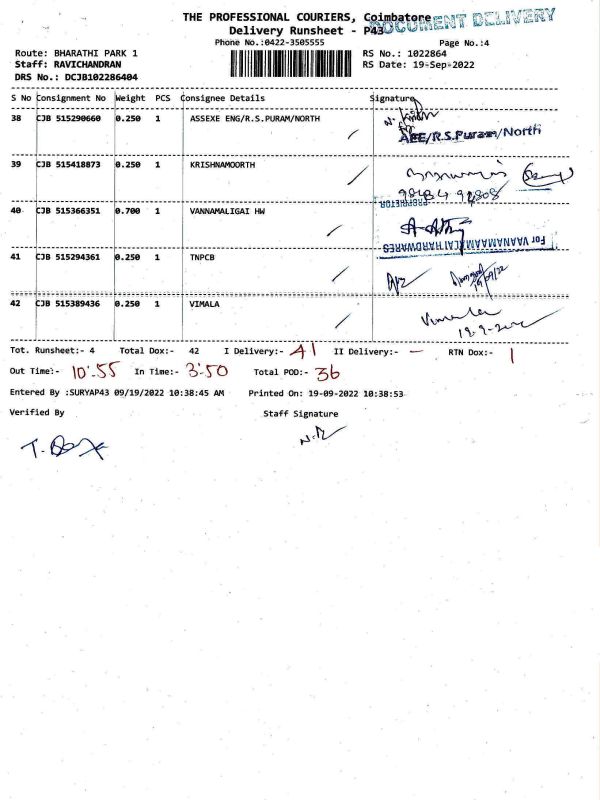 THE PROFESSIONAL COURIERS, Coimbatore
DOCUMENT DELIVERY
Delivery Runsheet - P43
Phone No.:0422-3505555 Page No.:4
Route: BHARATHI PARK 1 RS No.: 1022864
Staff: RAVICHANDRAN RS Date: 19-Sep-2022
DRS No.: DCJB102286404
S No Consignment No Weight PCS Consignee Details Signature
38 CJB 515290660 0.250 1 ASSEXE ENG/R.S.PURAM/NORTH
AEE/R.S.Puram/North
39 CJB 515418873 0.250 1 KRISHNAMOORTH
98484 92808
PROPRIETOR
40 CJB 515366351 0.700 1 VANNAMALIGAI HW
For VAANAMAMALAI HARDWARES
41 CJB 515294361 0.250 1 TNPCB
19/09/22
42 CJB 515389436 0.250 1 VIMALA
Vimala
19-9-2022
Tot. Runsheet:- 4 Total Dox:- 42 I Delivery:- 41 II Delivery:- - RTN Dox:- 1
Out Time:- 10:55 In Time:- 3:50 Total POD:- 36
Entered By :SURYAP43 09/19/2022 10:38:45 AM Printed On: 19-09-2022 10:38:53
Verified By Staff Signature